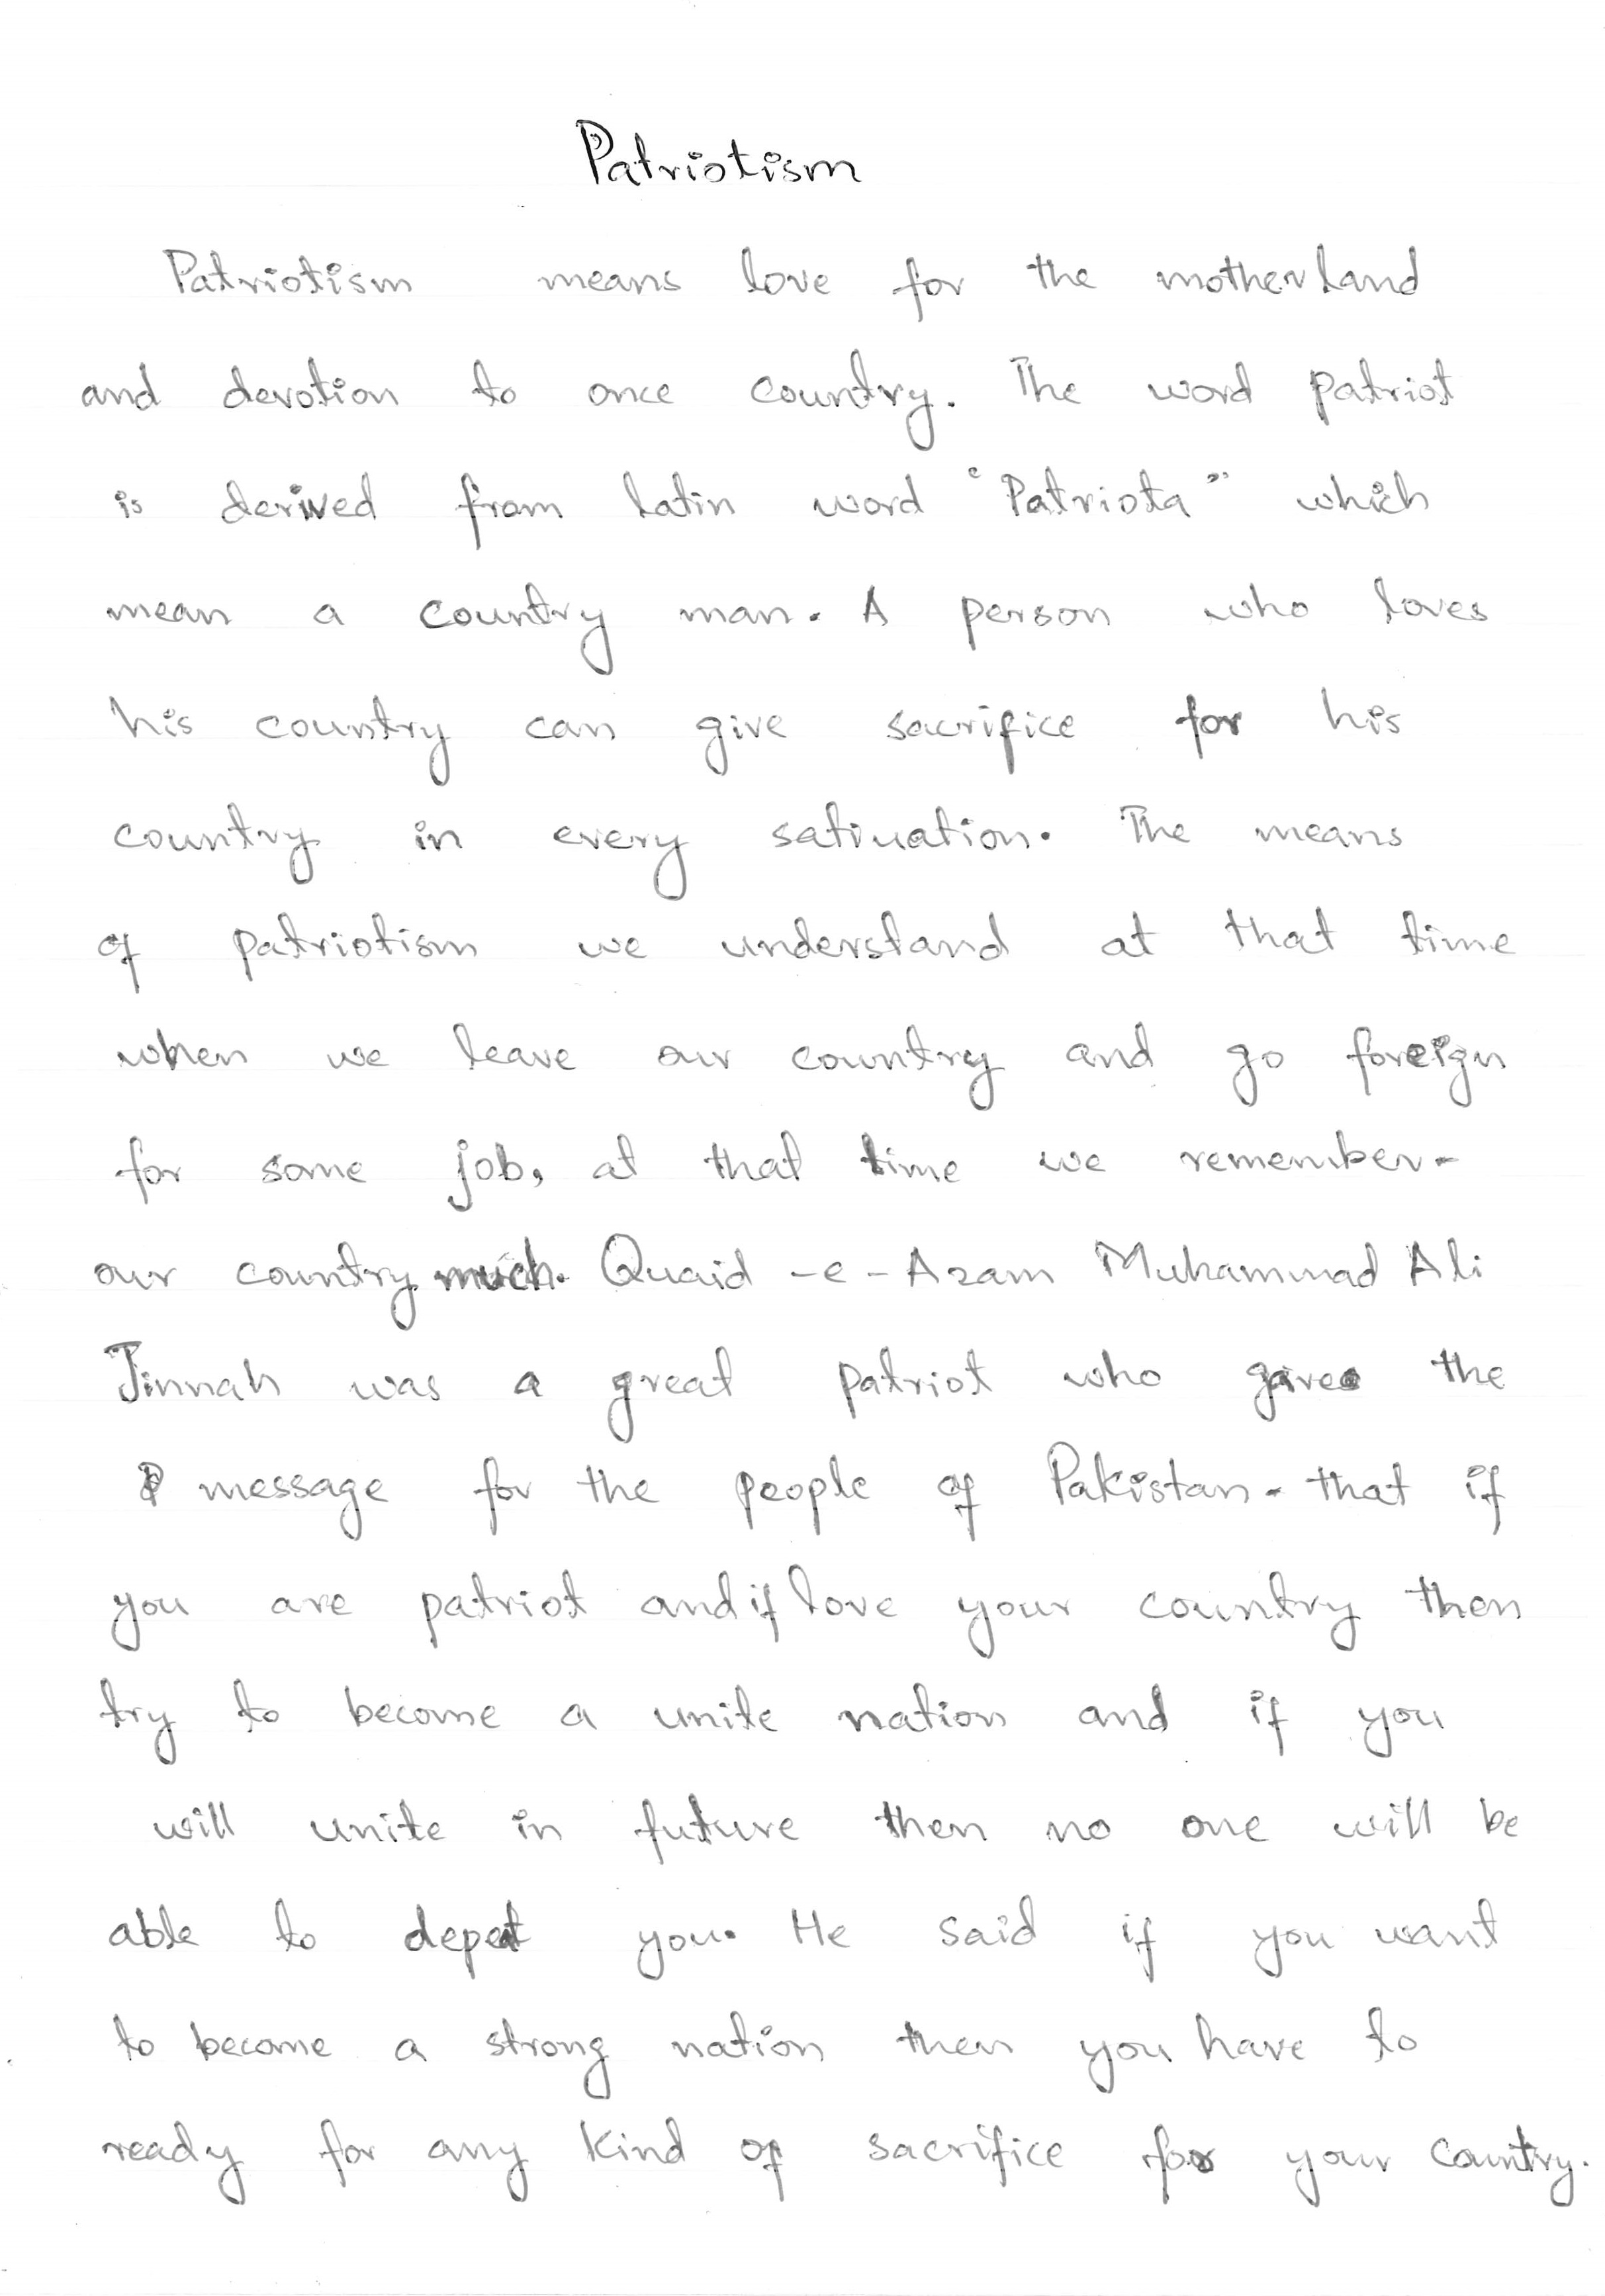 Patriotism
Patriotism means love for the motherland
and devotion to once country. The word patriot
is derived from latin word "Patriota" which
mean a country man. A person who loves
his country can give sacrifice for his
country in every satiuation. The means
of patriotism we understand at that time
when we leave our country and go foreign
for some job, at that time we remember-
our country much. Quaid -e- Azam Muhammad Ali
Jinnah was a great patriot who gives the
message for the people of Pakistan. that if
you are patriot and if love your country then
try to become a unite nation and if you
will unite in future then no one will be
able to depet you. He said if you want
to become a strong nation then you have to
ready for any kind of sacrifice for your country.